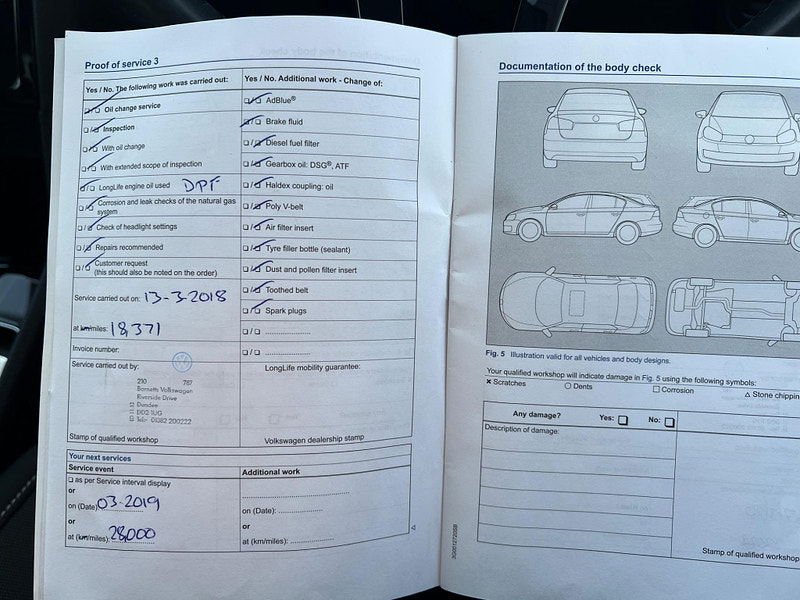 Proof of service 3
Yes / No. The following work was carried out:
Oil change service
Inspection
With oil change
With extended scope of inspection
LongLife engine oil used DPF
Corrosion and leak checks of the natural gas
system
Check of headlight settings
Repairs recommended
Customer request
(this should also be noted on the order)
Service carried out on: 13-3-2018
at km/miles: 18,371
Invoice number:
Service carried out by:
210 767
Barnetts Volkswagen
Riverside Drive
Dundee
DD2 1UG
Tel: 01382 200222
Stamp of qualified workshop
Yes / No. Additional work - Change of:
AdBlue®
Brake fluid
Diesel fuel filter
Gearbox oil: DSG®, ATF
Haldex coupling: oil
Poly V-belt
Air filter insert
Tyre filler bottle (sealant)
Dust and pollen filter insert
Toothed belt
Spark plugs
LongLife mobility guarantee:
Volkswagen dealership stamp
Your next services
Service event
as per Service interval display
or
on (Date) 03-2019
or
at (km/miles): 28,000
Additional work
on (Date):
or
at (km/miles):
Documentation of the body check
Fig. 5 Illustration valid for all vehicles and body designs.
Your qualified workshop will indicate damage in Fig. 5 using the following symbols:
× Scratches ○ Dents □ Corrosion △ Stone chippin
Any damage? Yes: No:
Description of damage:
Stamp of qualified workshop